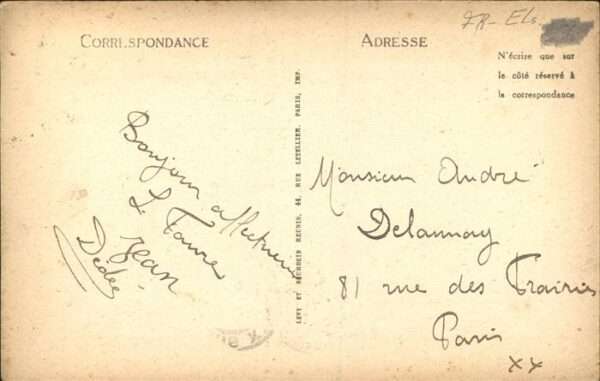 FR-Els
CORRESPONDANCE
ADRESSE
N'écrire que sur
le côté réservé à
la correspondance
Bonjour affectueux
L. Faure
Jean
Dédée
LEVY ET NEURDEIN REUNIS, 44, RUE LETELLIER, PARIS, IMP.
Monsieur André
Delannay
81 rue des Prairies
Paris
XX